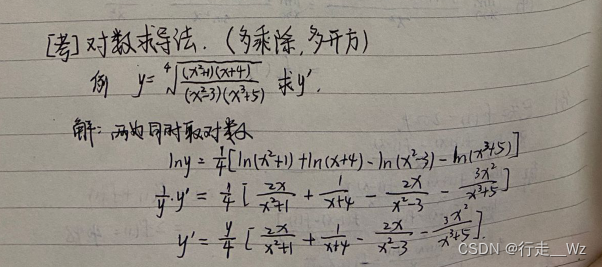 [考]对数求导法.(多乘除,多开方)
例 y=⁴√((x²+1)(x+4)/((x²-3)(x³+5))) 求y'.
解:两边同时取对数
lny=1/4[ln(x²+1)+ln(x+4)-ln(x²-3)-ln(x³+5)]
1/y·y'=1/4[2x/(x²+1)+1/(x+4)-2x/(x²-3)-3x²/(x³+5)]
y'=y/4[2x/(x²+1)+1/(x+4)-2x/(x²-3)-3x²/(x³+5)]
CSDN @行走__Wz